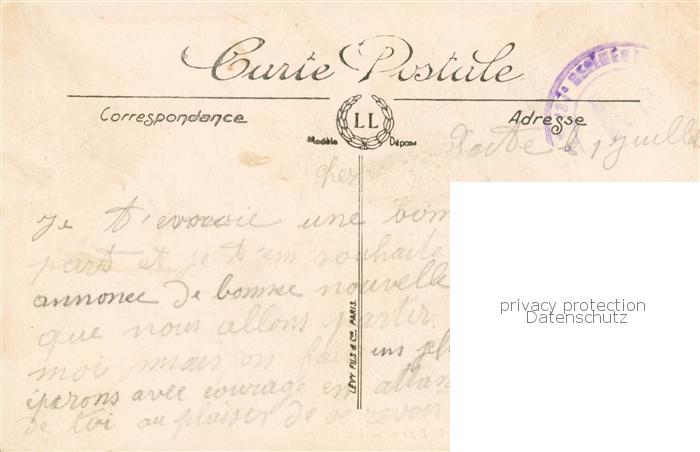 Carte Postale
Correspondance
Adresse
LL
Modèle Déposé
REGIMENT
le 1 juillet
cher
Je t'envoie une bon
part et je t'en souhaite
annonce de bonne nouvelle
que nous allons partir
moi mais on fait un pl
éperons avec courage en attan
de toi au plaisir de se revoir
LÉVY FILS & Cie PARIS.
privacy protection
Datenschutz